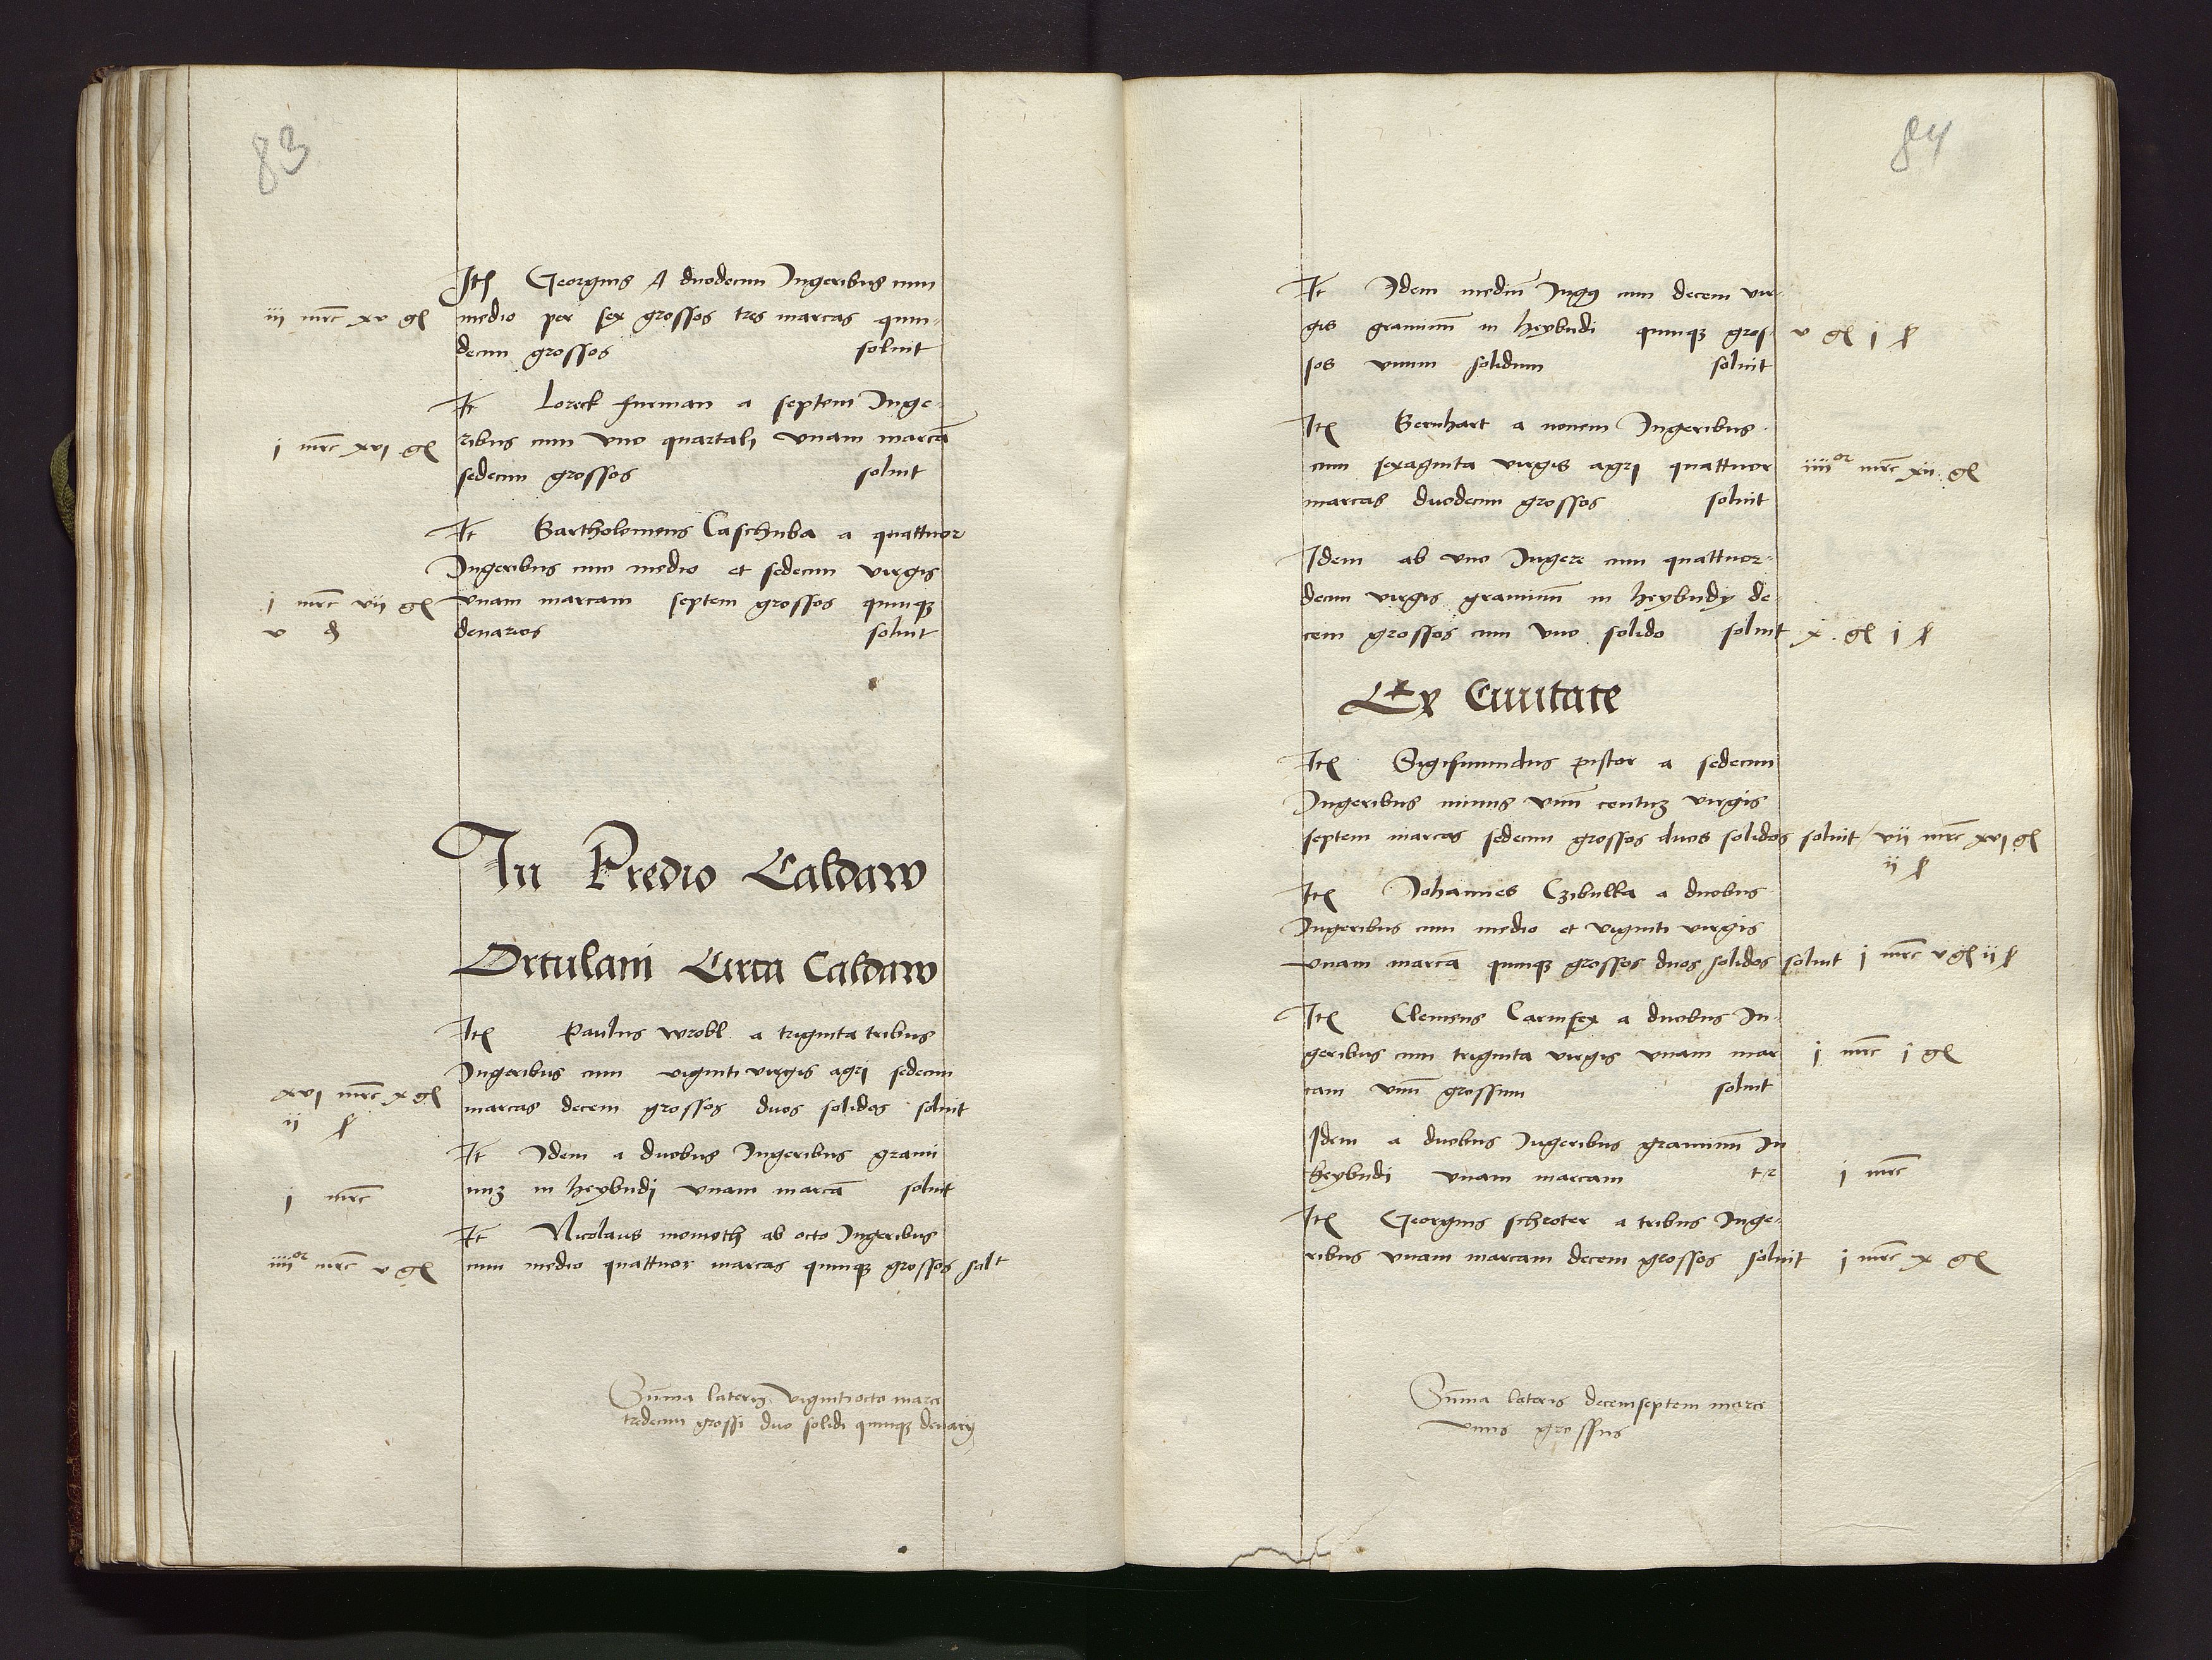 83
Itē Georgius A duodecim Jugeribus cum
iii mrc xv gſ medio per sex grossos tres marcas quin-
decim grossos soluit
It Loreck furman a septem Juge-
i mrc xvi gſ ribus cum vno quartali vnam marcā
sedecim grossos soluit
It Bartholomeus Caschuba a quattuor
Jugeribus cum medio et sedecim virgis
i mrc vii gſ vnam marcam septem grossos quinqꝫ
v ₰ denarios soluit
In Predio Caldaw
Ortulani Circa Caldaw
Itē Paulus wrobl a triginta tribus
Jugeribus cum viginti virgis agri sedecim
xvi mrc x gſ marcas decem grossos duos solidos soluit
ii ß
It Idem a duobus Jugeribus grami
i mrc nuꝫ in heybudi vnam marcā soluit
It Nicolaus momoth ab octo Jugeribus
iiiior mrc v gſ cum medio quattuor marcas quinqꝫ grossos solt
Sūma lateris vigintiocto marce
tredecim grossi duo solidi quinqꝫ denarij
84
It Idem mediū Jugꝰ cum decem vir-
gis graminū in heybudi quinqꝫ gros- v gſ i ß
sos vnum solidum soluit
Itē Bernhart a nouem Jugeribus
cum sexaginta virgis agri quattuor iiiior mrc xii gſ
marcas duodecim grossos soluit
Idem ab vno Jugere cum quattuor-
decim virgis graminū in heybudy de-
cem grossos cum vno solido soluit x gſ i ß
Ex Ciuitate
Itē Sigismundus pistor a sedecim
Jugeribus minus vnū centuꝫ virgis
septem marcas sedecim grossos duos solidos soluit / vii mrc xvi gſ
ii ß
Itē Johannes Czibulka a duobus
Jugeribus cum medio et viginti virgis
vnam marcā quinqꝫ grossos duos solidos soluit i mrc v gſ ii ß
Itē Clemens Carnifex a duobus Ju-
geribus cum triginta virgis vnam mar i mrc i gſ
cam vnū grossum soluit
Idem a duobus Jugeribus graminū In
heybudi vnam marcam i mrc
Itē Georgius schroter a tribus Juge-
ribus vnam marcam decem grossos soluit i mrc x gſ
Sūma lateris decemseptem marce
vnus grossus